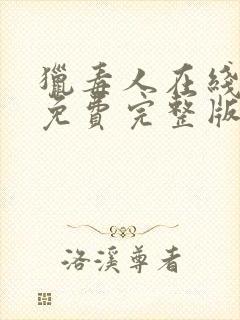 獵毒人在綫
免費完整版
洛溪尊者